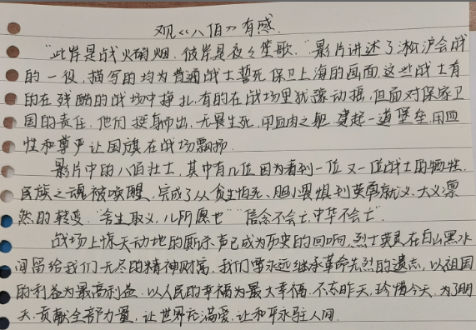 观《八佰》有感.
"此岸是战火硝烟,彼岸是夜夜笙歌."影片讲述了淞沪会战
的一役,描写的均为普通战士誓死保卫上海的画面,这些战士有
的在残酷的战场中挣扎,有的在战场里犹豫动摇,但面对保家卫
国的责任,他们挺身而出,无畏生死,用血肉之躯,筑起一道堡垒,用血
性和尊严让国旗在战场飘扬.
影片中的八佰壮士,其中有几位因为看到一位又一位战士的牺牲,
民族之魂被唤醒,完成了从贪生怕死、胆小畏惧到英勇就义、大义凛
然的转变."舍生取义,儿所愿也""信念不会亡,中华不会亡"
战场上惊天动地的厮杀声已成为历史的回响,烈士英灵在白山黑水
间留给我们无尽的精神财富,我们需永远继承革命先烈的遗志,以祖国
的利益为最高利益,以人民的幸福为最大幸福,不忘昨天,珍惜今天,为了明
天贡献全部力量,让世界充满爱,让和平永驻人间.